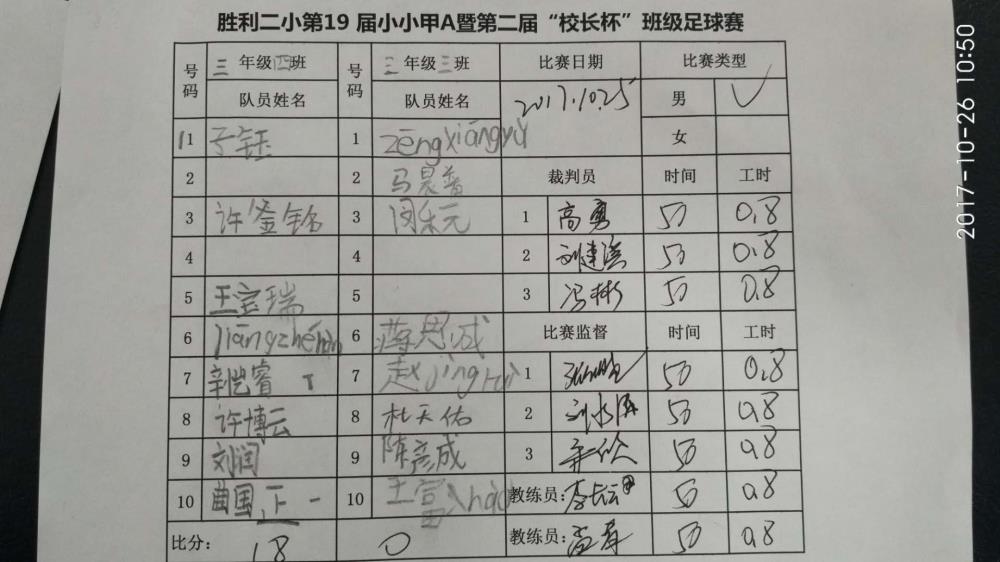 胜利二小第19 届小小甲A暨第二届“校长杯”班级足球赛
号码 三 年级四班 号码 三 年级三班 比赛日期 比赛类型
队员姓名 队员姓名 2017.10.25 男 ✓
女
11 子钰 1 zēngxiāngyù
2 2 马昊 裁判员 时间 工时
3 许 铭 3 闵乐元 1 高勇 50 0.8
4 4 2 刘建 50 0.8
5 王宝瑞 5 3 冯彬 50 0.8
6 jiāngzhé 6 蒋思成 比赛监督 时间 工时
7 辛恺睿 7 赵jing 1 50 0.8
8 许博云 8 杜天佑 2 刘 50 0.8
9 刘润 9 陈彦成 3 50 0.8
10 曲国正 10 王 hào 教练员: 李长云 50 0.8
比分: 18 0 教练员: 孟 50 0.8
2017-10-26 10:50